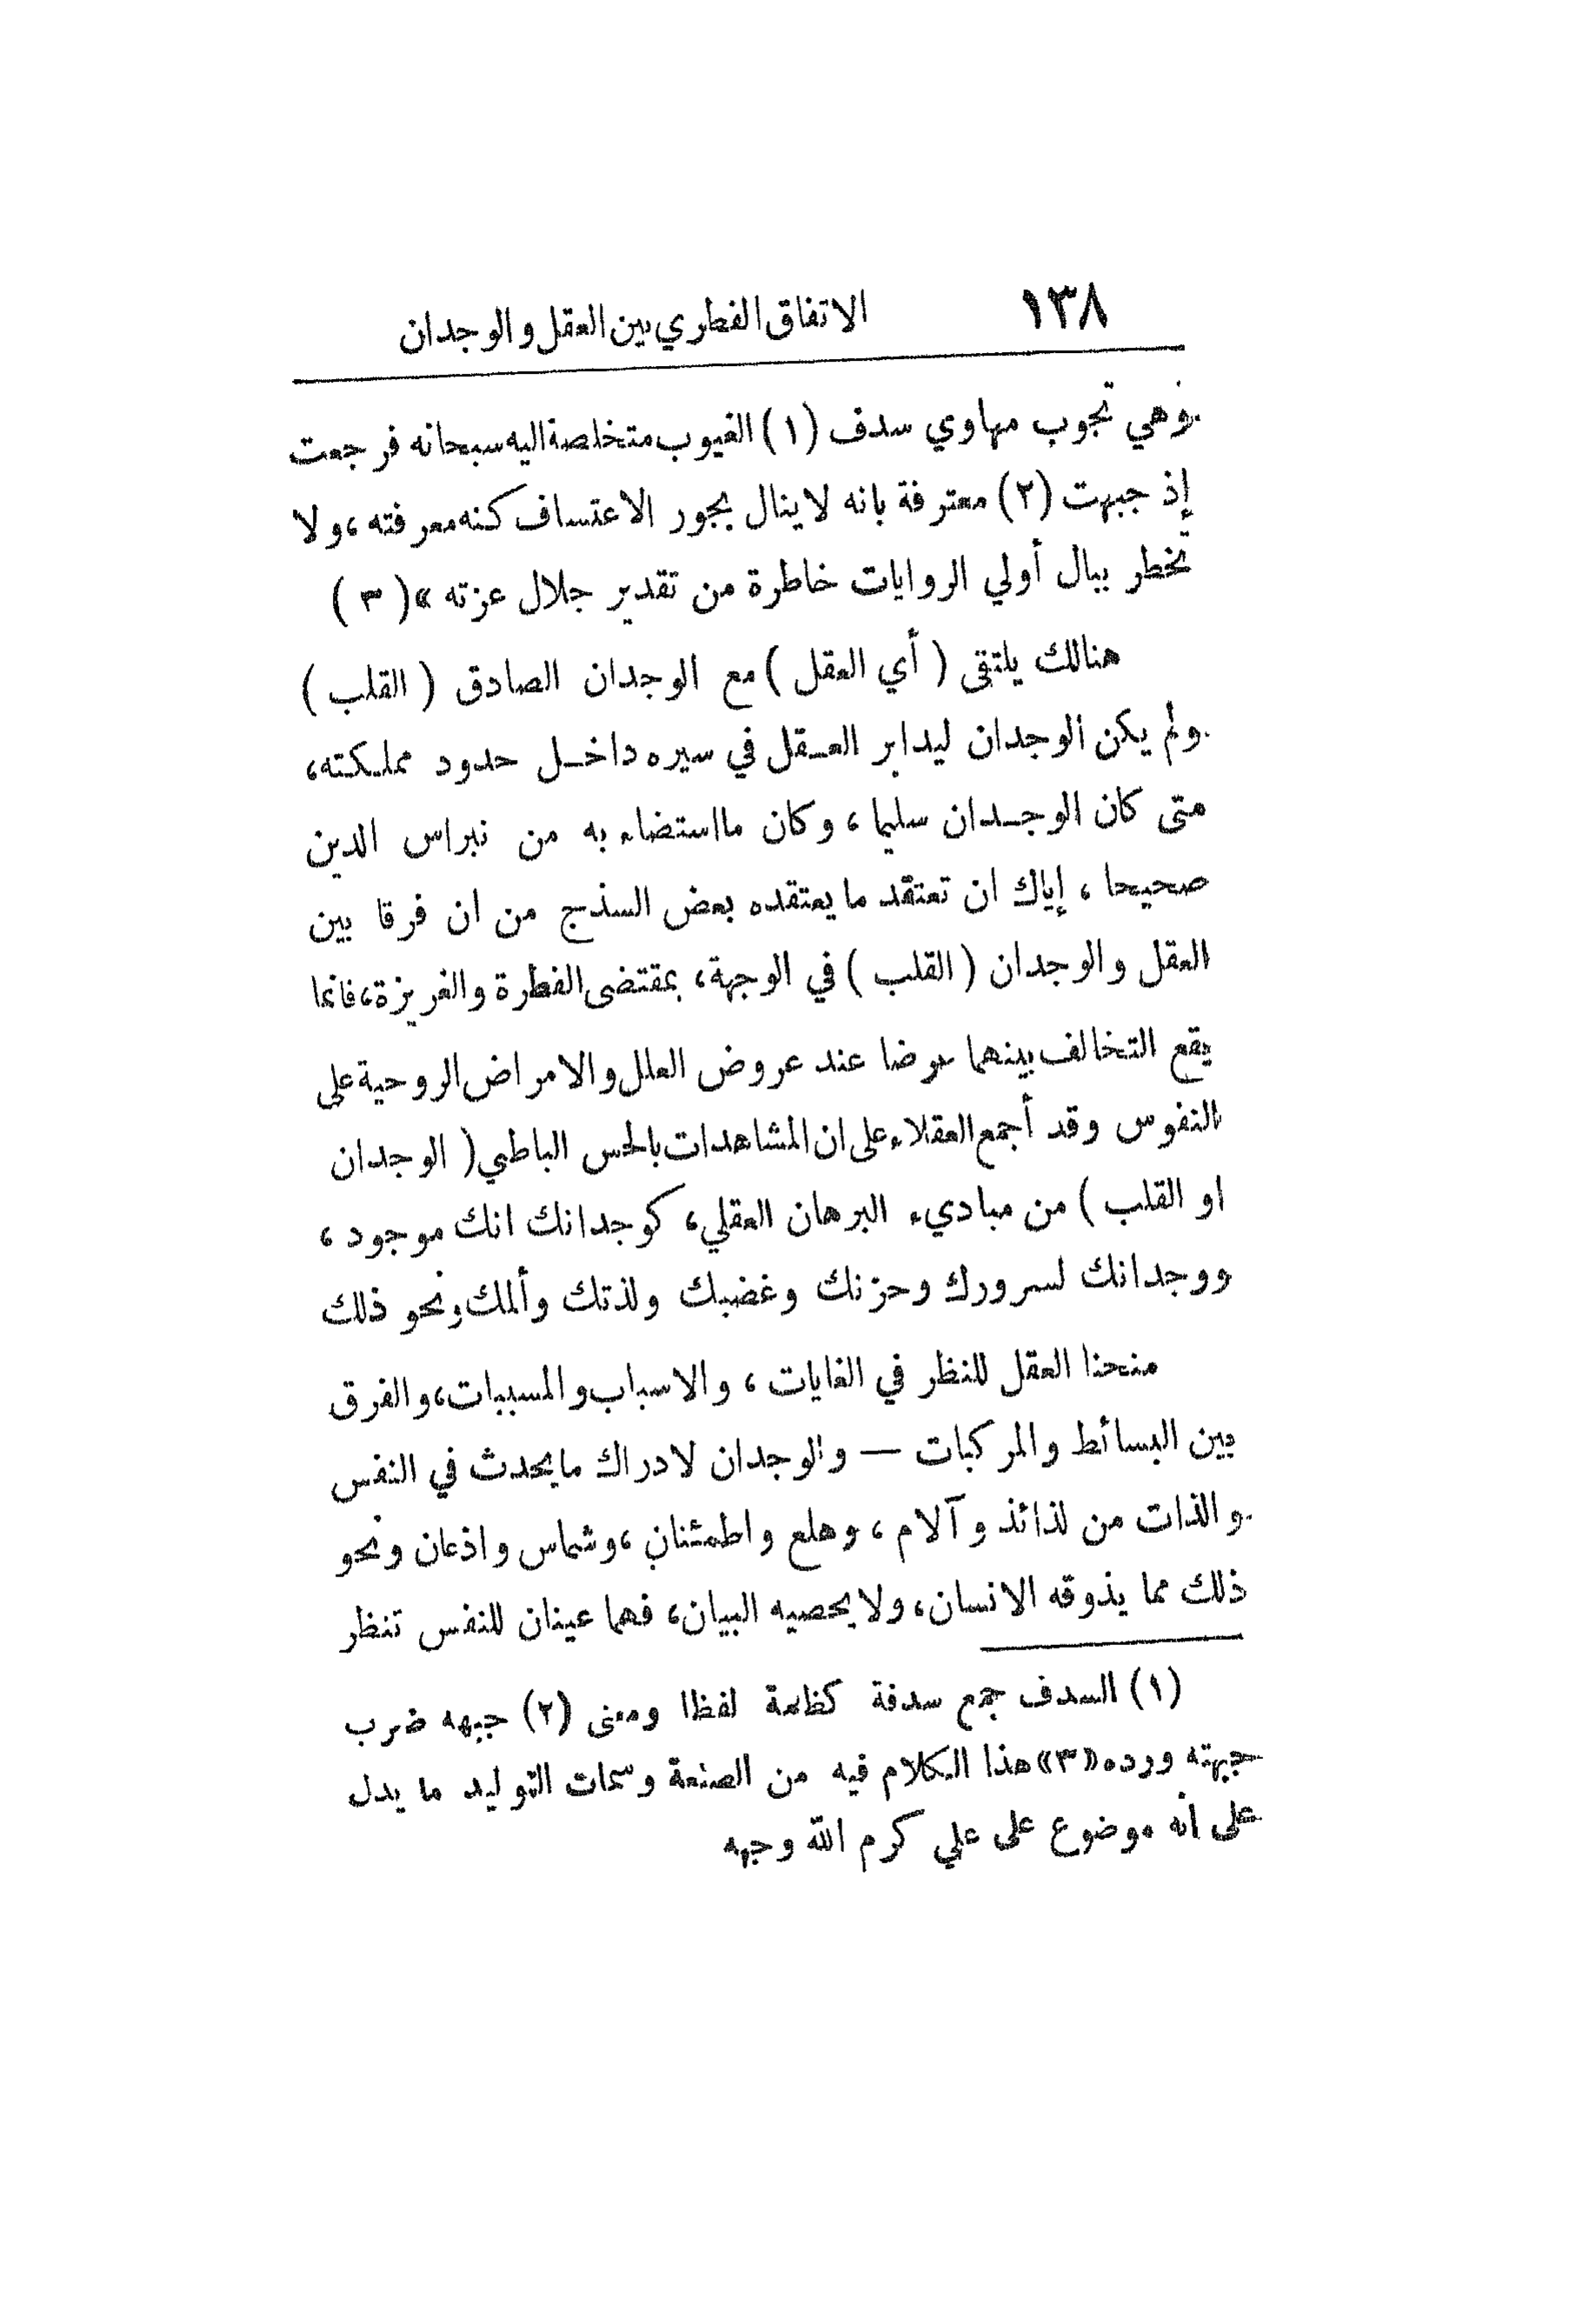 ١٣٨ الاتفاق الفطري بين العقل والوجدان
وهي تجوب مهاوي سدف (١) الغيوب متخلصة اليه سبحانه فرجعت
إذ جبهت (٢) معترفة بانه لا ينال بجور الاعتساف كنه معرفته، ولا
تخطر ببال أولي الروايات خاطرة من تقدير جلال عزته » (٣)
هنالك يلتقى ( أي العقل ) مع الوجدان الصادق ( القلب )
ولم يكن الوجدان ليدابر العـقل في سيره داخـل حدود مملـكته،
متى كان الوجـدان سليما ، وكان ما استضاء به من نبراس الدين
صحيحا ، إياك ان تعتقد ما يعتقده بعض السذج من ان فرقا بين
العقل والوجدان ( القلب ) في الوجهة، بمقتضى الفطرة والغريزة، فانما
يقع التخالف بينهما عرضا عند عروض العلل والامراض الروحية على
النفوس وقد أجمع العقلاء على ان المشاهدات بالحس الباطني ( الوجدان
او القلب ) من مباديء البرهان العقلي، كوجدانك انك موجود ،
ووجدانك لسرورك وحزنك وغضبك ولذتك وألمك ونحو ذلك
منحنا العقل للنظر في الغايات ، والاسباب والمسببات، والفرق
بين البسائط والمركبات — والوجدان لادراك ما يحدث في النفس
والذات من لذائذ وآلام ، وهلع واطمئنان ، وشماس واذعان ونحو
ذلك مما يذوقه الانسان، ولا يحصيه البيان، فهما عينان للنفس تنظر
(١) السدف جمع سدفة كظلمة لفظا ومعنى (٢) جبهه ضرب
جبهته ورده «٣» هذا الكلام فيه من الصنعة وسمات التوليد ما يدل
على أنه موضوع على علي كرم الله وجهه